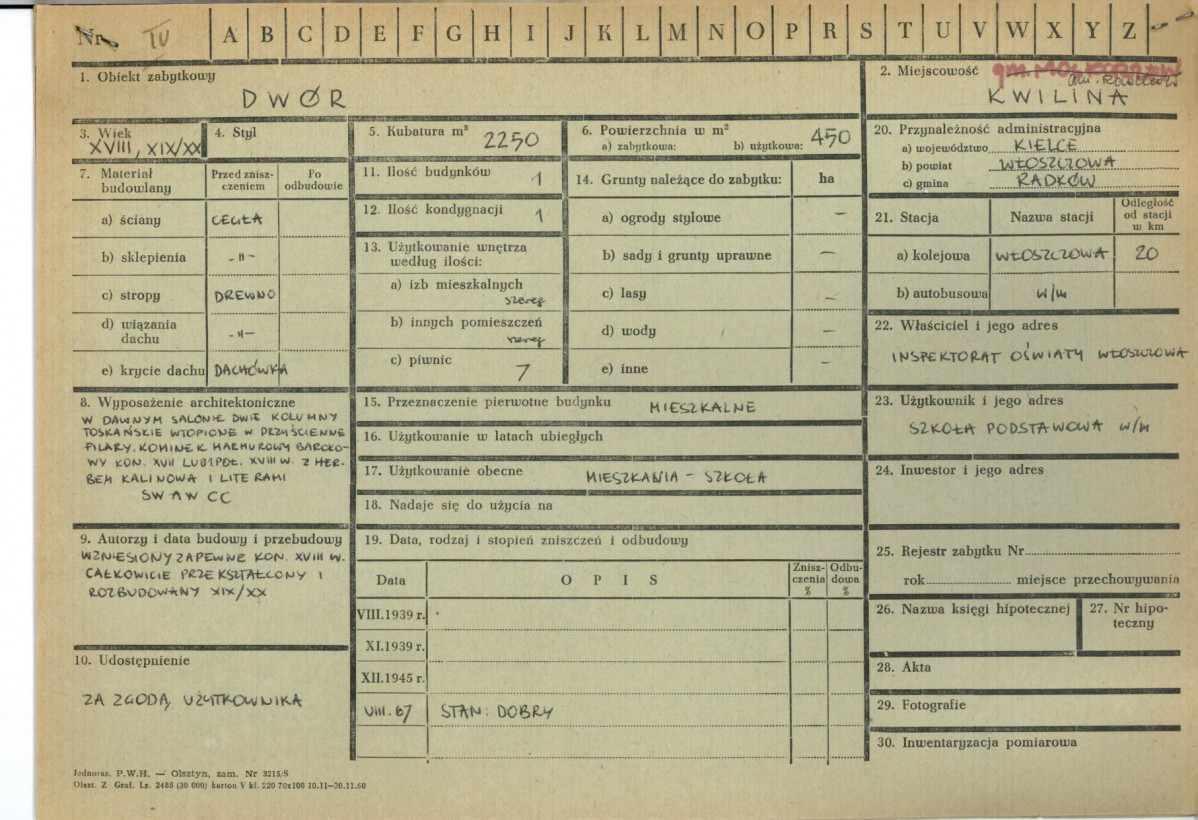 Nr IV A B C D E F G H I J K L M N O P R S T U V W X Y Z
1. Obiekt zabytkowy
DWÓR
2. Miejscowość
KWILINA
3. Wiek
XVIII, XIX/XX
4. Styl
5. Kubatura m³ 2250
6. Powierzchnia w m²
a) zabytkowa: b) użytkowa: 450
7. Materiał budowlany
Przed zniszczeniem
Po odbudowie
a) ściany CEGŁA
b) sklepienia -"-
c) stropy DREWNO
d) wiązania dachu -"-
e) krycie dachu DACHÓWKA
8. Wyposażenie architektoniczne
W DAWNYM SALONIE DWIE KOLUMNY
TOSKAŃSKIE WTOPIONE W PRZYŚCIENNE
FILARY. KOMINEK MARMUROWY BAROKO-
WY KON. XVII LUB I POŁ. XVIII W. Z HER-
BEM KALINOWA I LITERAMI
SW AW CC
9. Autorzy i data budowy i przebudowy
WZNIESIONY ZAPEWNE KON. XVIII W.
CAŁKOWICIE PRZEKSZTAŁCONY I
ROZBUDOWANY XIX/XX
10. Udostępnienie
ZA ZGODĄ UŻYTKOWNIKA
11. Ilość budynków 1
12. Ilość kondygnacji 1
13. Użytkowanie wnętrza
według ilości:
a) izb mieszkalnych
szereg
b) innych pomieszczeń
szereg
c) piwnic 7
14. Grunty należące do zabytku: ha
a) ogrody stylowe –
b) sady i grunty uprawne –
c) lasy –
d) wody –
e) inne –
15. Przeznaczenie pierwotne budynku MIESZKALNE
16. Użytkowanie w latach ubiegłych
17. Użytkowanie obecne MIESZKANIA – SZKOŁA
18. Nadaje się do użycia na
19. Data, rodzaj i stopień zniszczeń i odbudowy
Data OPIS Zniszczenia % Odbudowa %
VIII.1939 r.
XI.1939 r.
XII.1945 r.
VIII.67 STAN: DOBRY
20. Przynależność administracyjna
a) województwo KIELCE
b) powiat WŁOSZCZOWA
c) gmina RADKÓW
21. Stacja Nazwa stacji Odległość od stacji w km
a) kolejowa WŁOSZCZOWA 20
b) autobusowa w/m
22. Właściciel i jego adres
INSPEKTORAT OŚWIATY WŁOSZCZOWA
23. Użytkownik i jego adres
SZKOŁA PODSTAWOWA w/m
24. Inwestor i jego adres
25. Rejestr zabytku Nr
rok miejsce przechowywania
26. Nazwa księgi hipotecznej
27. Nr hipo-
teczny
28. Akta
29. Fotografie
30. Inwentaryzacja pomiarowa
Jednoraz. P.W.H. — Olsztyn, zam. Nr 3215/S
Olszt. Z Graf. Lz. 2485 (30 000) karton V kl. 220 70x100 10.11–30.11.60